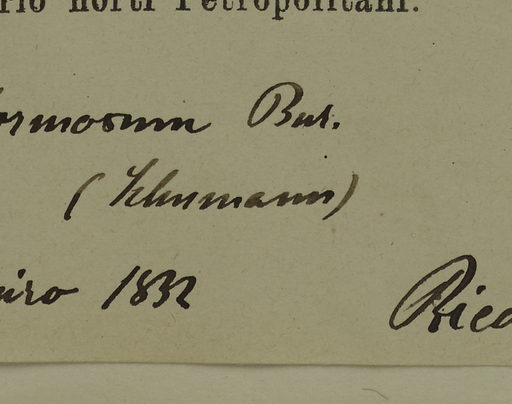 rio horti Petropolitani.
ormosum Bur.
(Schumann)
eiro 1832
Ried